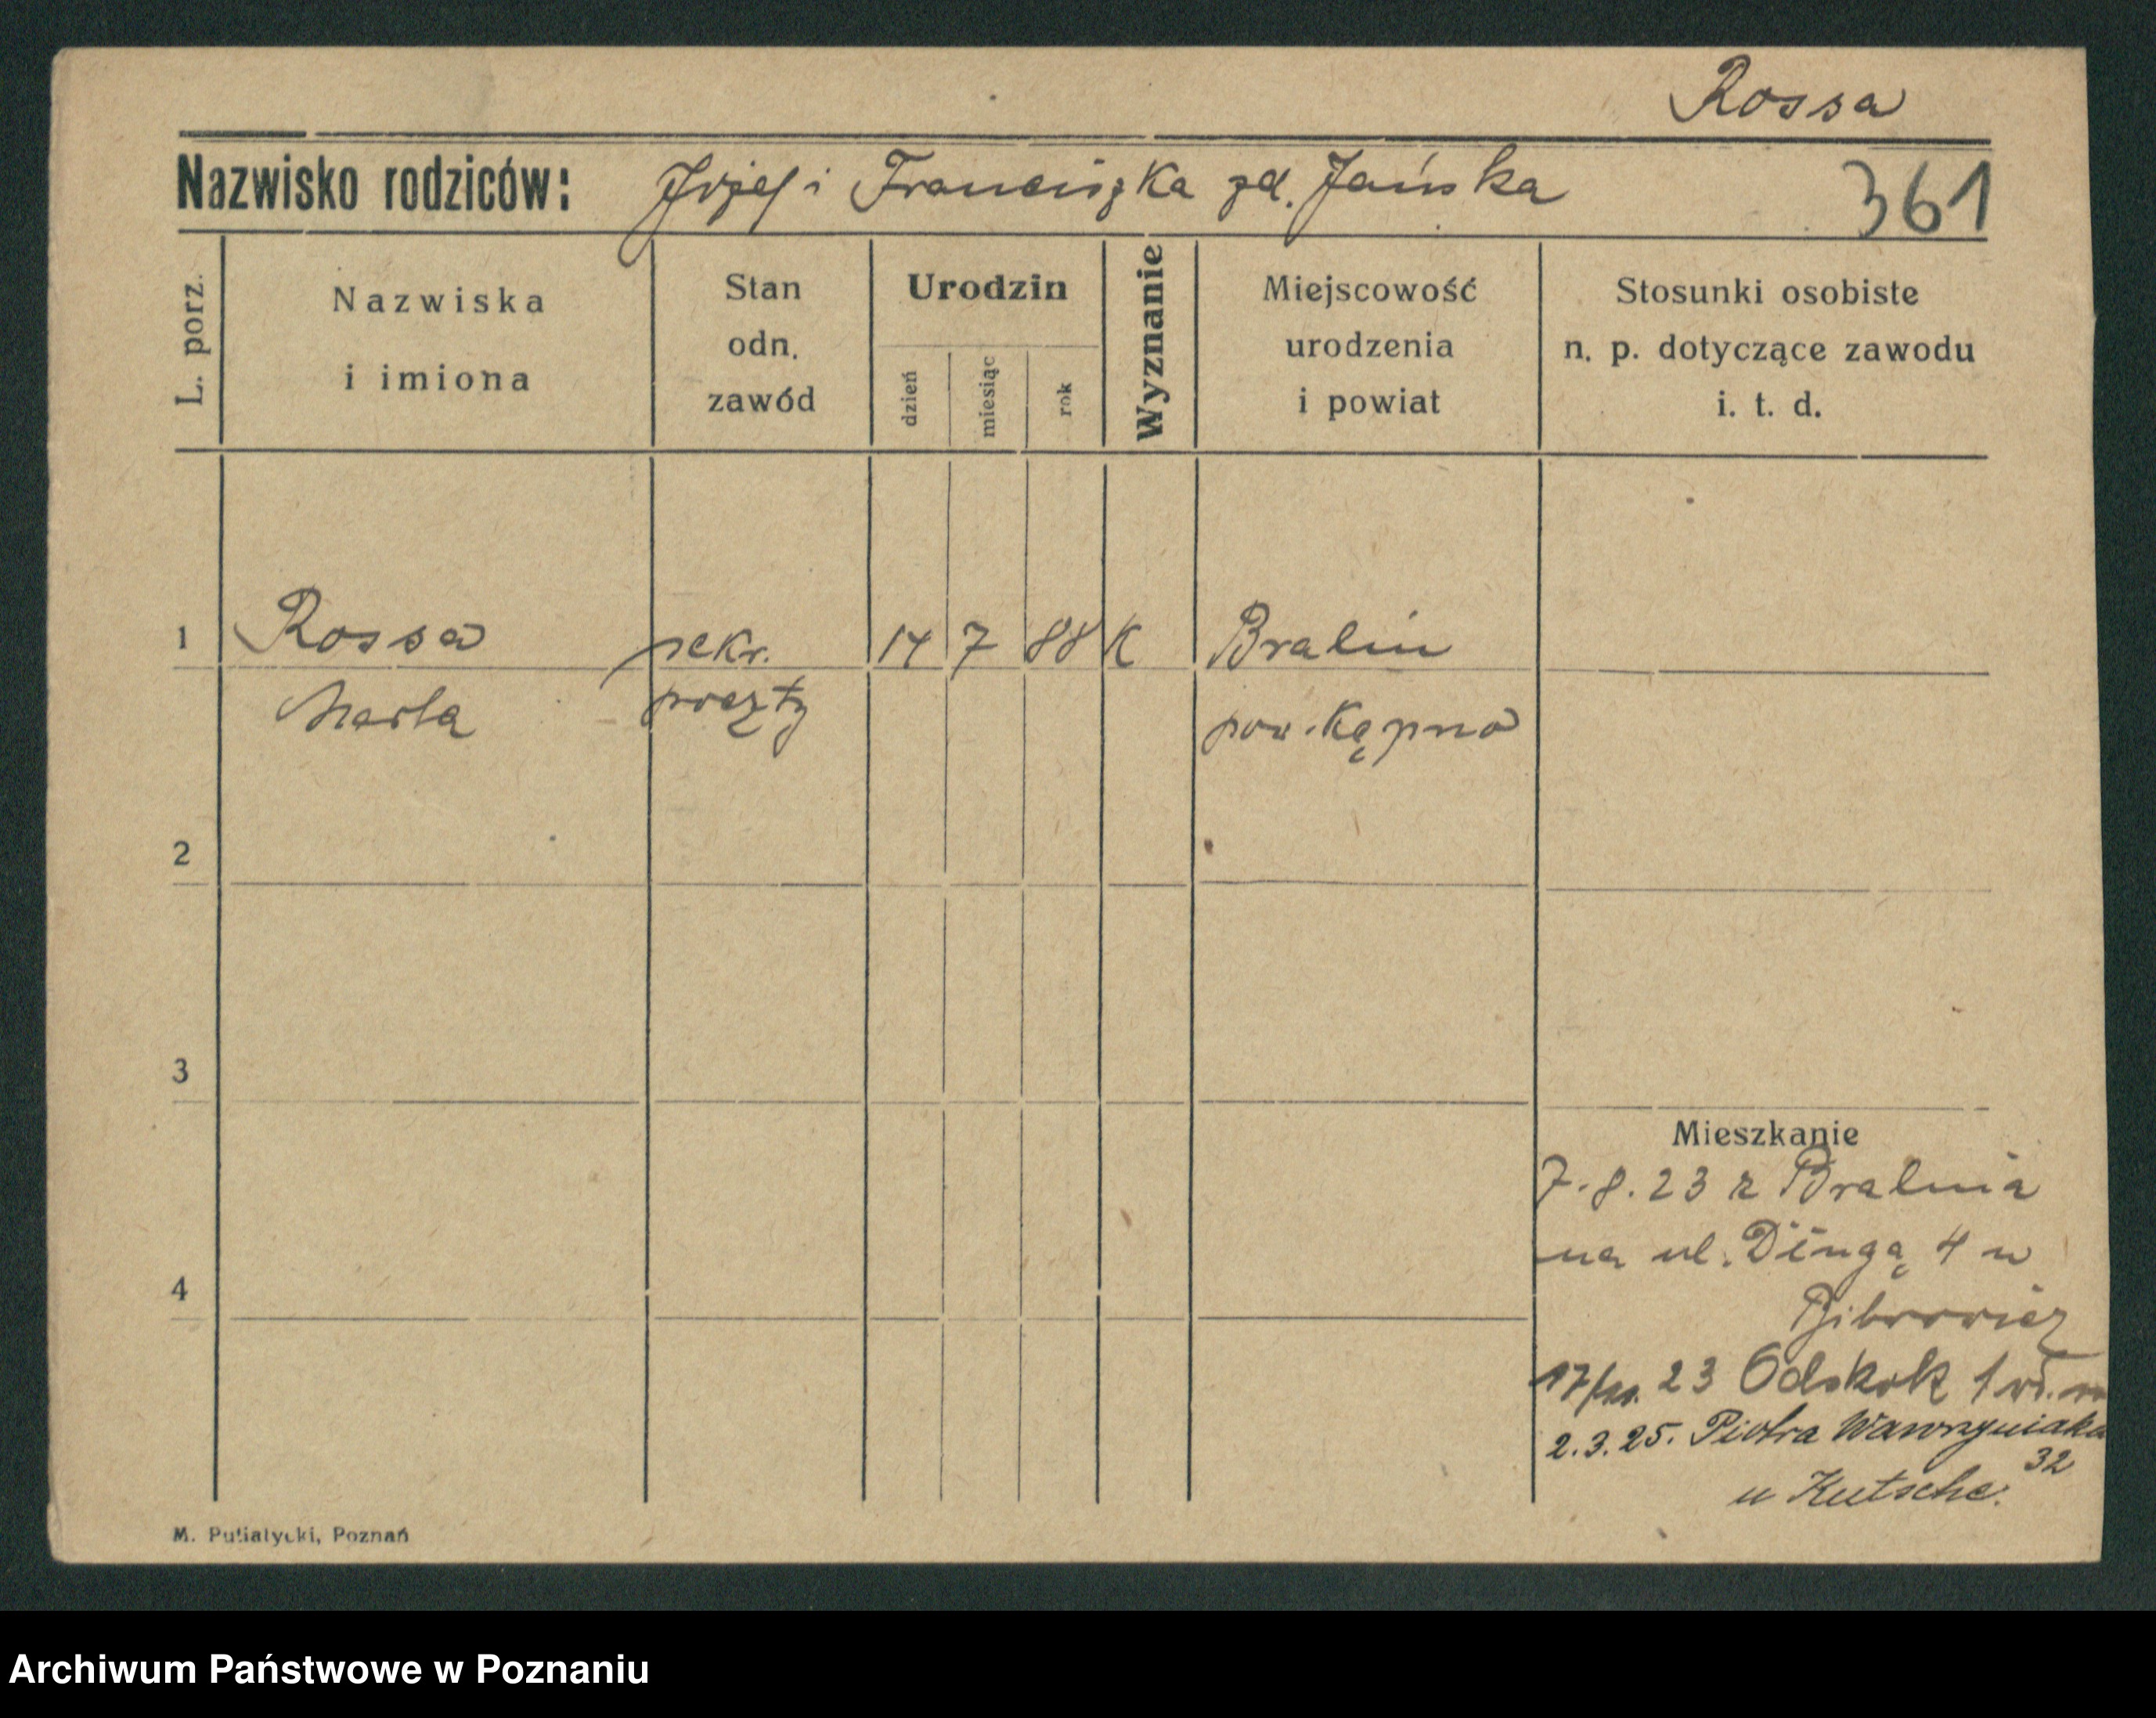 Rossa
Nazwisko rodziców: Józef i Franciszka zd. Jańska 361
L. porz.
Nazwiska
i imiona
Stan
odn.
zawód
Urodzin
dzień
miesiąc
rok
Wyznanie
Miejscowość
urodzenia
i powiat
Stosunki osobiste
n. p. dotyczące zawodu
i. t. d.
1 Rossa sekr. 14 7 88 K Bralin
Marta poczty pow. Kępno
2
3
4
Mieszkanie
7.8.23 z Bralina
na ul. Długą 4 u
23 Odskok 1
2.3.25. Piotra Wawrzyniaka
32
u Kutsche.
M. Putiatycki, Poznań
Archiwum Państwowe w Poznaniu